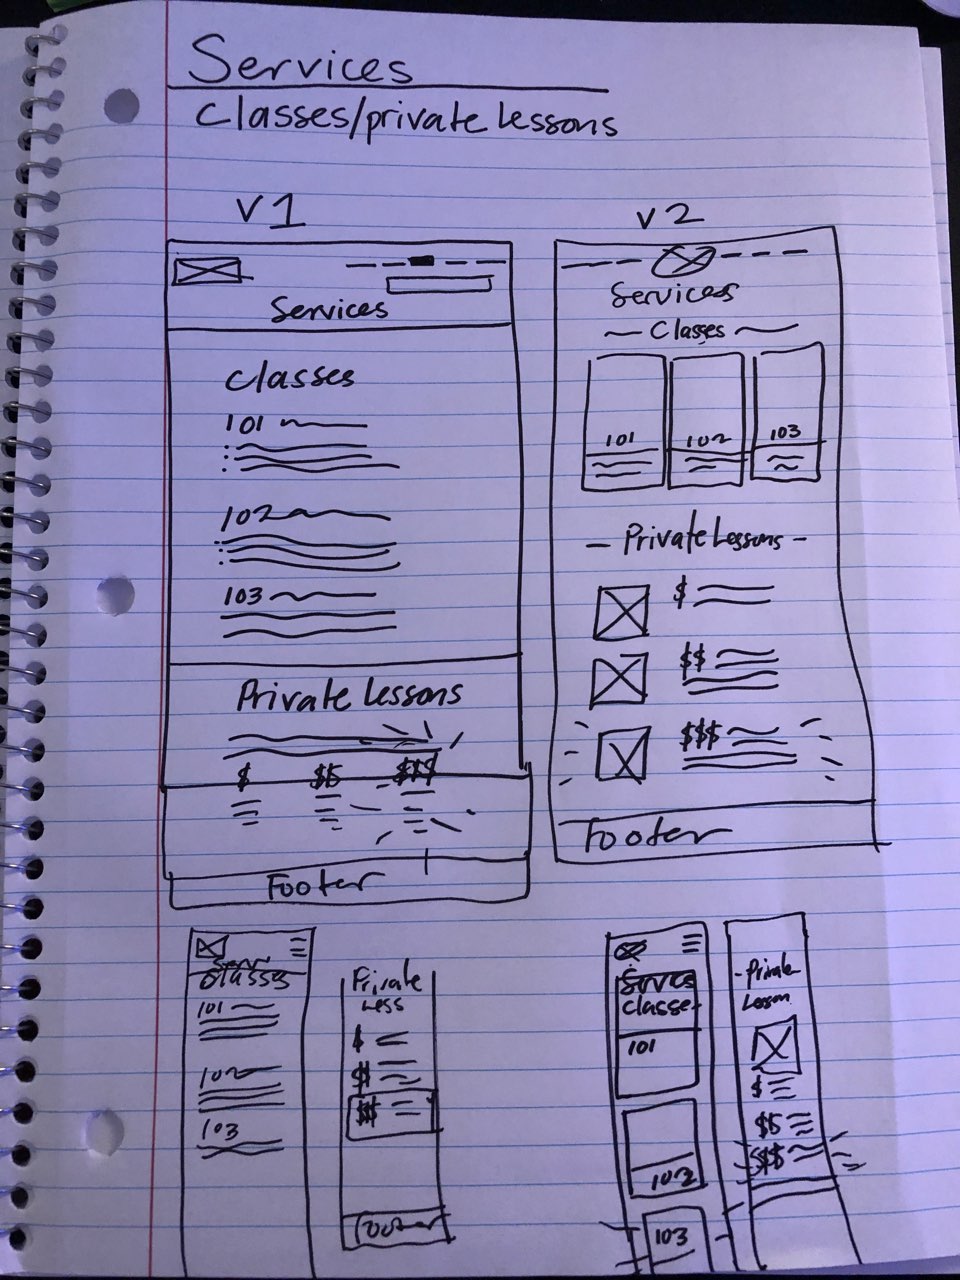 Services
Classes/private lessons
V1
Services
Classes
101
102
103
Private Lessons
$ $$ $$$
Footer
V2
Services
Classes
101 102 103
Private Lessons
$
$$
$$$
Footer
Serv
Classes
101
102
103
Private
Less
$
$$
$$$
Footer
Classes
101
102
103
Private
Lesson
$
$$
$$$